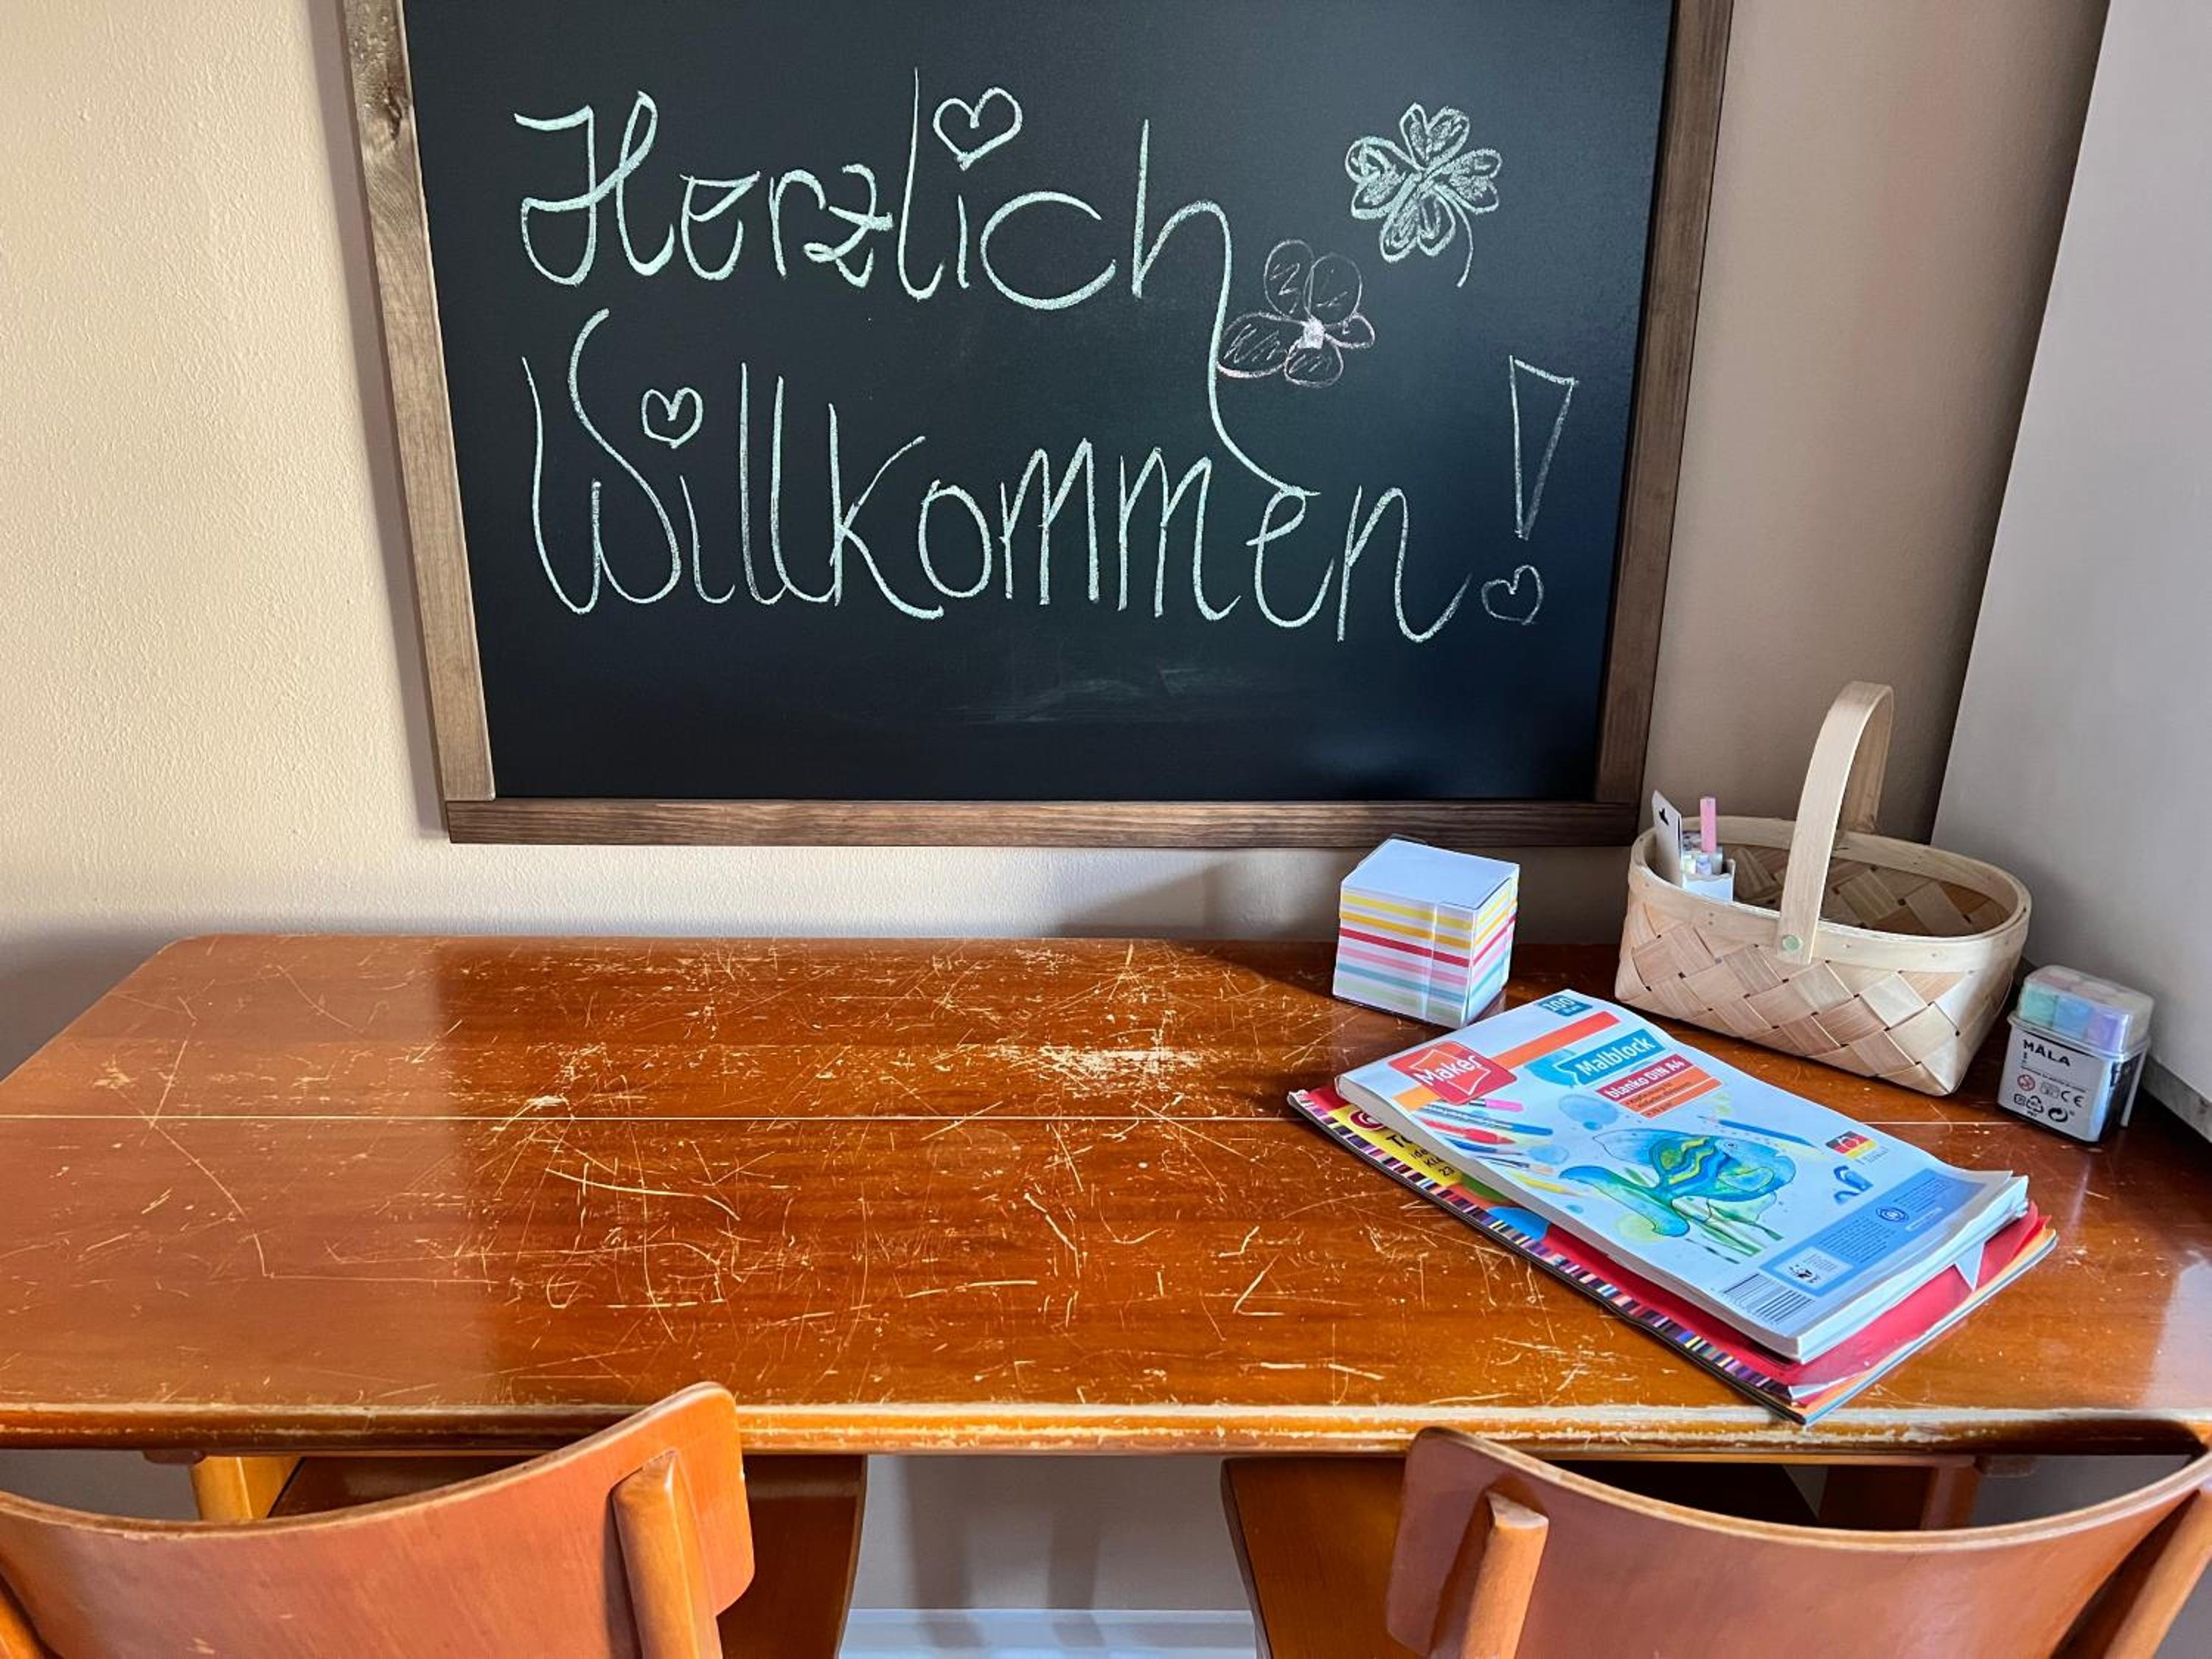 Herzlich
Willkommen!
100
Maker
Malblock
blanko DIN A4
MÅLA
CE